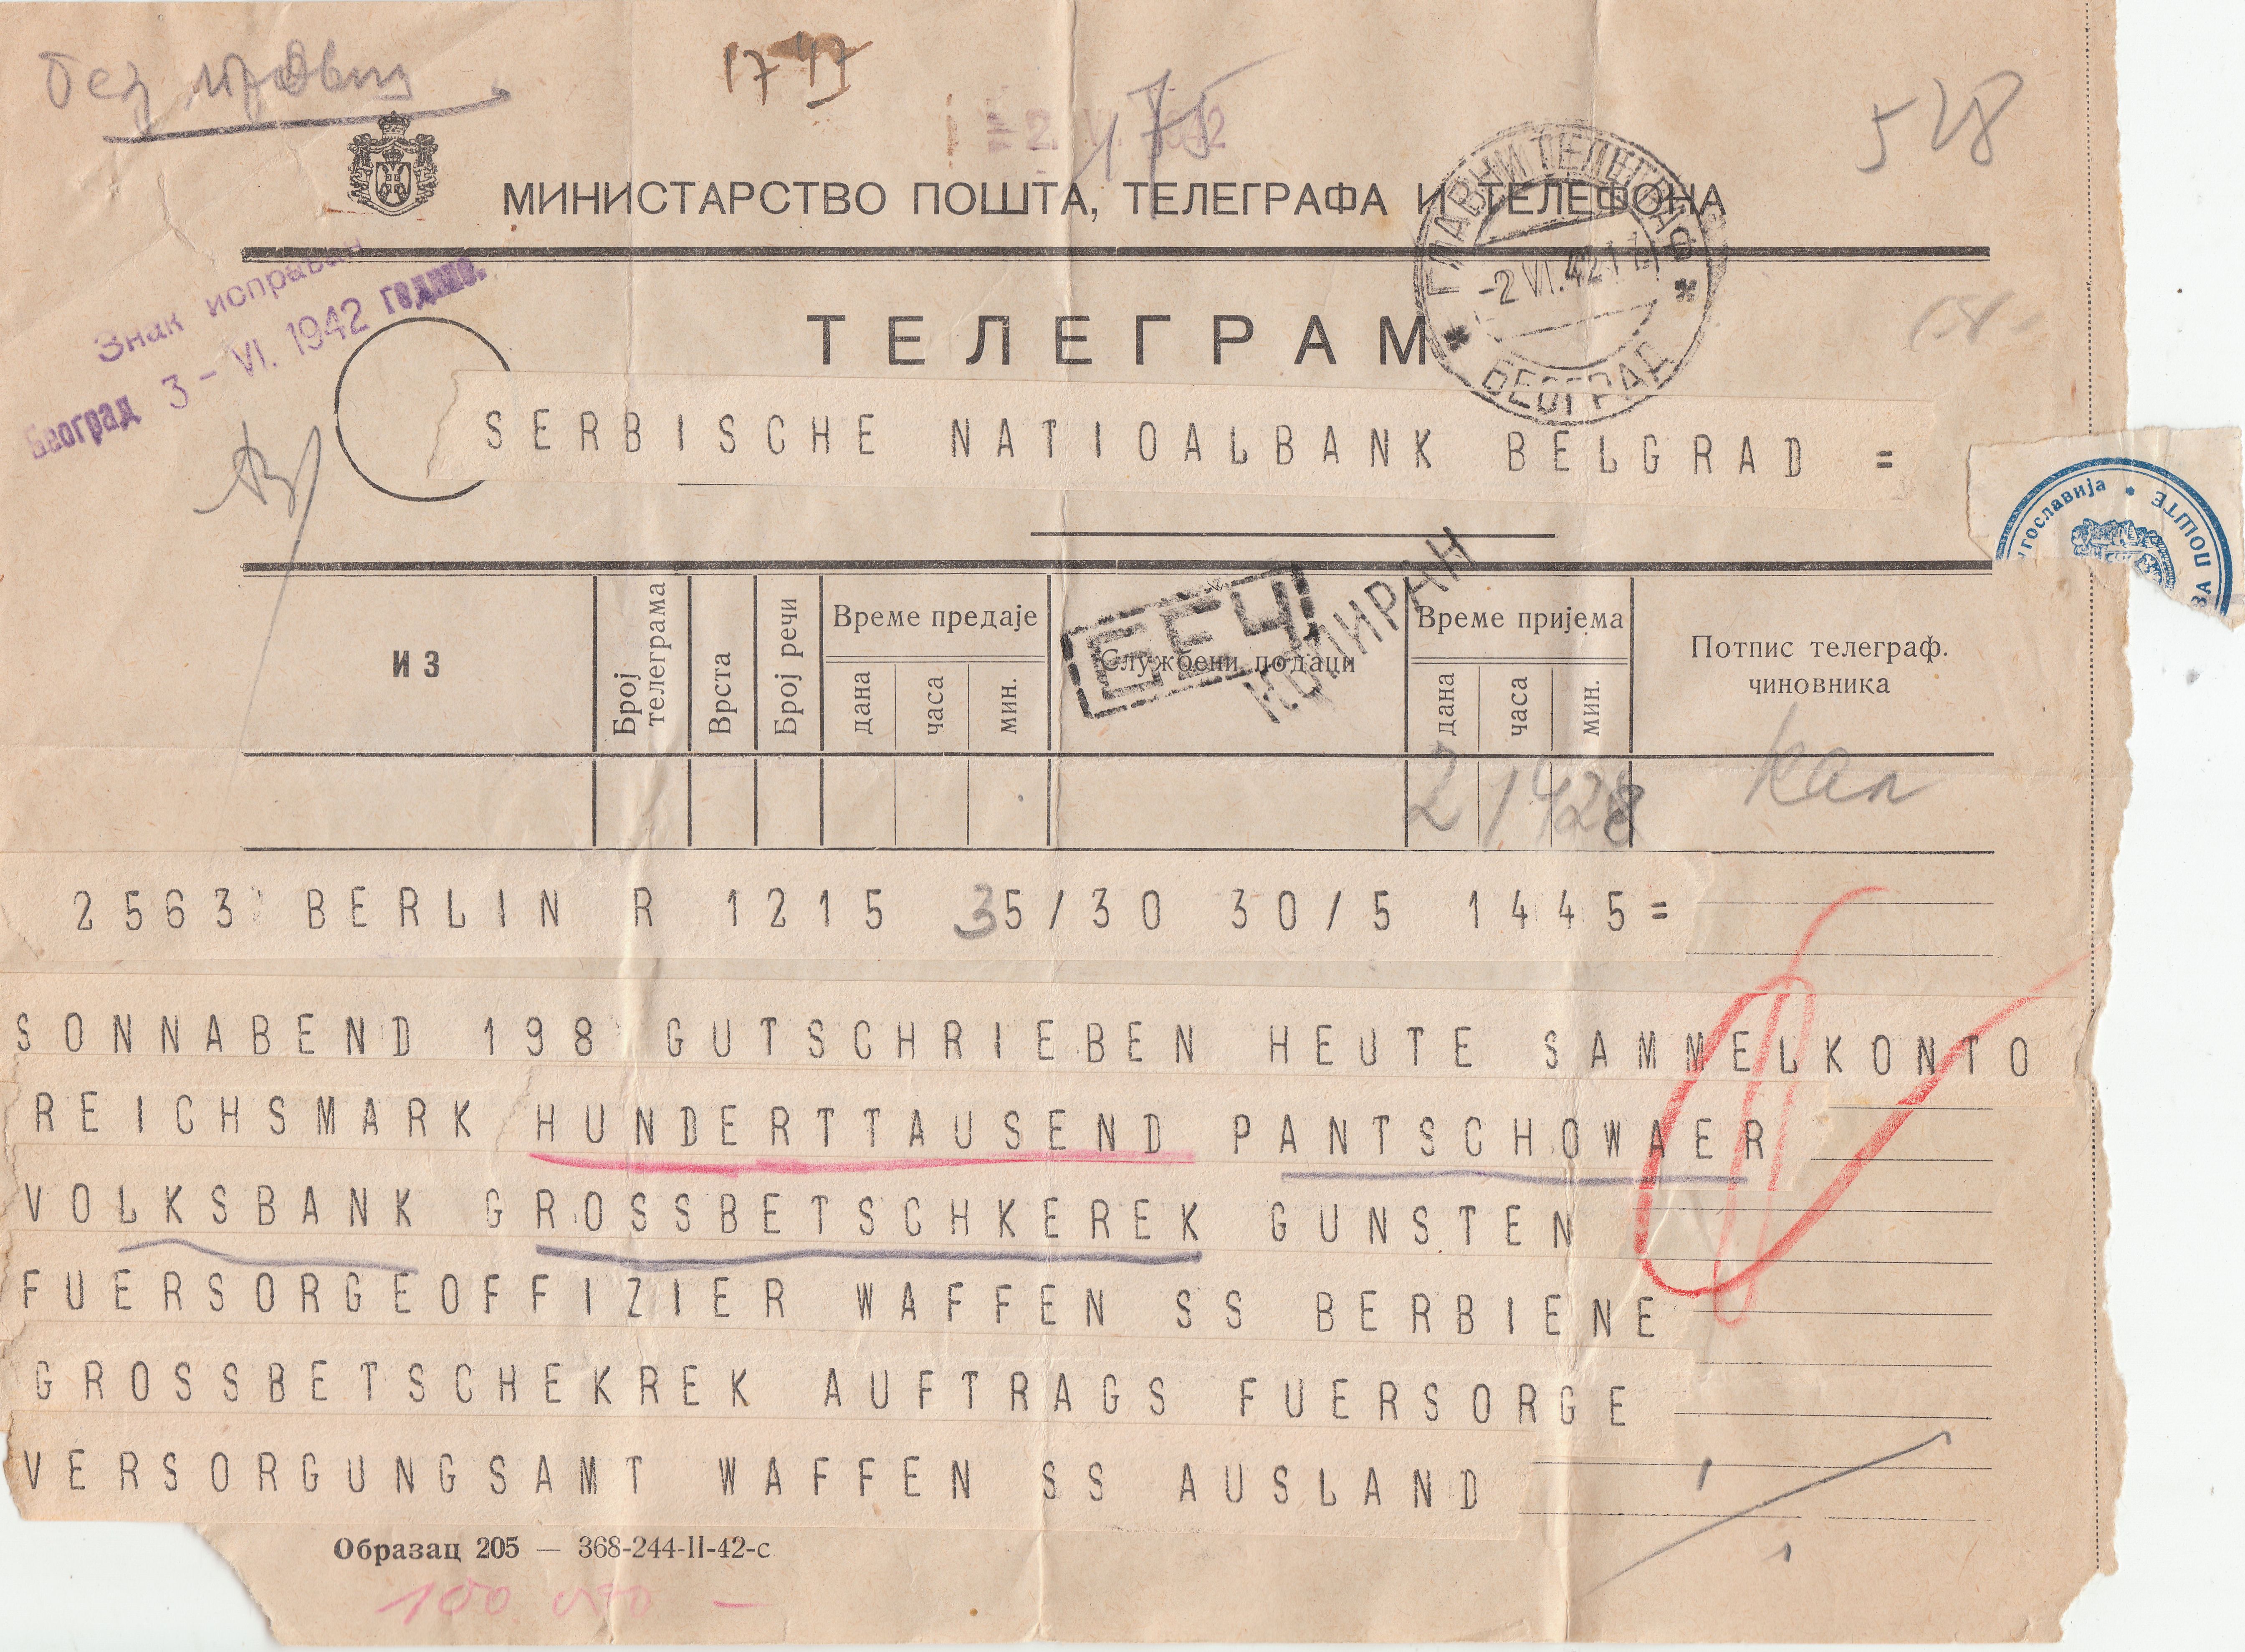 1747
528
МИНИСТАРСТВО ПОШТА, ТЕЛЕГРАФА И ТЕЛЕФОНА
ГЛАВНИ ТЕЛЕГРАФ
-2 VI. 42
БЕОГРАД
Знак исправан
Београд 3 - VI. 1942 године.
ТЕЛЕГРАМ
SERBISCHE NATIOALBANK BELGRAD =
гославија * ЗА ПОШТЕ
ИЗ
Број телеграма
Врста
Број речи
Време предаје
дана
часа
мин.
Службени подаци
БЕЧ
Време пријема
дана
часа
мин.
Потпис телеграф. чиновника
2 14 28
2563 BERLIN R 1215 35/30 30/5 1445=
SONNABEND 198 GUTSCHRIEBEN HEUTE SAMMELKONTO
REICHSMARK HUNDERTTAUSEND PANTSCHOWAER
VOLKSBANK GROSSBETSCHKEREK GUNSTEN
FUERSORGEOFFIZIER WAFFEN SS BERBIENE
GROSSBETSCHEKREK AUFTRAGS FUERSORGE
VERSORGUNGSAMT WAFFEN SS AUSLAND
Образац 205 — 368-244-II-42-с